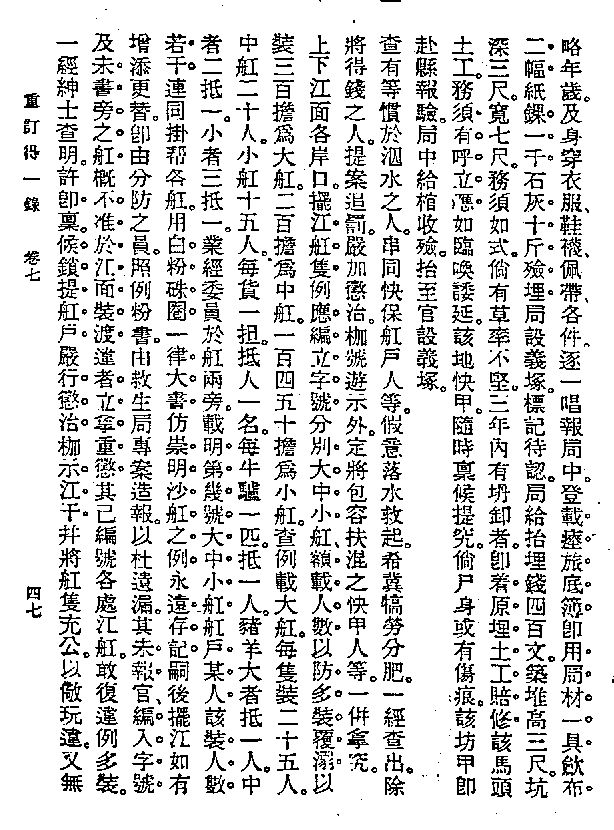 略年歲及身穿衣服、鞋襪、佩帶各件、逐一唱報局中登載瘞旅底簿卽用局材一具斂布
二幅紙錁一千石灰十斤殮埋局設義塚。標記待認局給抬埋錢四百文。築堆高三尺。坑
深三尺。寬七尺。務須如式倘有草率不堅三年內有坍卸者卽着原埋土工賠修該馬頭
土工務須有呼立應如臨喚諉延該地快甲隨時稟候提究。倘尸身或有傷痕該坊甲卽
赴縣報驗。局中給棺收殮抬至官設義塚。
查有等慣於泅水之人。串同快保舡戶人等。假意落水救起。希冀犒勞分肥。一經查出除
將得錢之人。提案追罰。嚴加懲治枷號遊示外。定將包容扶混之快甲人等。一併拏究。
上下江面各岸口擺江舡隻例應編立字號分別大中小舡額載人數以防多裝覆溺以
裝三百擔爲大舡。二百擔爲中舡。一百四五十擔爲小舡。查例載大舡每隻裝二十五人。
中舡二十人。小舡十五人。每貨一担。抵人一名。每牛驢一匹。抵一人。豬羊大者抵一人。中
者二抵一。小者三抵一。業經委員於舡兩旁載明第幾號大中小舡舡戶某人該裝人數
若干連同掛帮各舡用白粉硃圈一律大書仿崇明沙舡之例永遠存記嗣後擺江如有
增添更替卽由分防之員照例粉書由救生局專案造報以杜遺漏其未報官編入字號
及未書旁之舡槪不准於江面裝渡違者立拏重懲其已編號各處江舡。敢復違例多裝。
一經紳士查明。許卽稟候鎖提舡戶嚴行懲治枷示江干幷將舡隻充公以儆玩違又無
重訂得一錄 卷七 四七